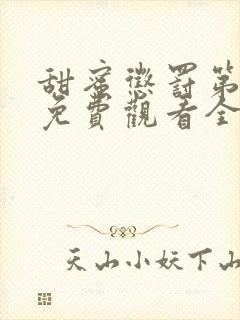 甜蜜懲罰第
免費觀看全
天山小妖下山